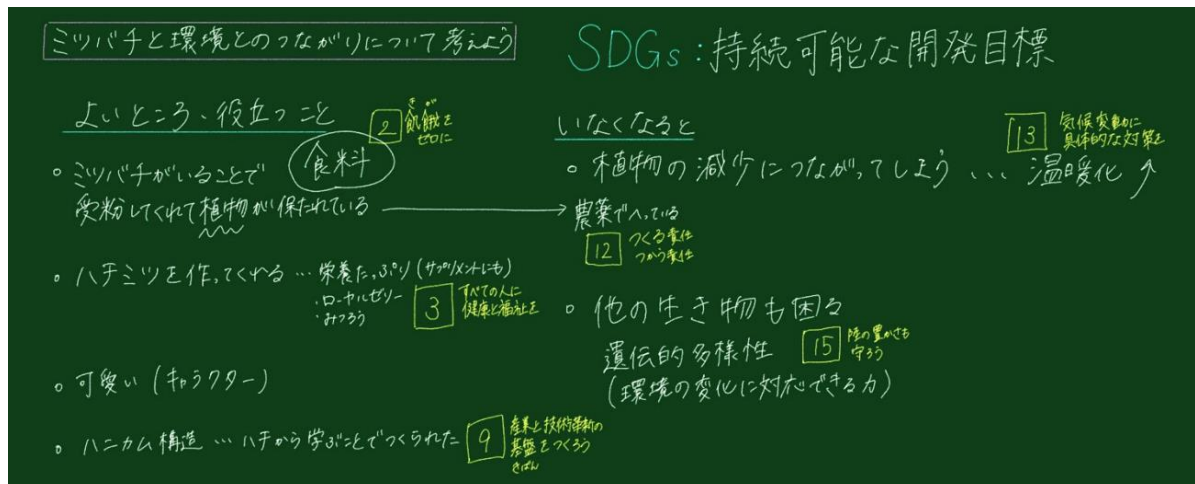 ミツバチと環境とのつながりについて考えよう
SDGs:持続可能な開発目標
よいところ、役立つこと
2
きが
飢餓を
ゼロに
食料
・ミツバチがいることで
受粉してくれて植物が保たれている
・ハチミツを作ってくれる…栄養たっぷり(サプリメントにも)
・ローヤルゼリー
・みつろう
3
すべての人に
健康と福祉を
・可愛い(キャラクター)
・ハニカム構造…ハチから学ぶことでつくられた
9
産業と技術革新の
基盤をつくろう
きばん
いなくなると
・植物の減少につながってしまう…温暖化↗
13
気候変動に
具体的な対策を
→農薬でへっている
12
つくる責任
つかう責任
・他の生き物も困る
遺伝的多様性
15
陸の豊かさも
守ろう
(環境の変化に対応できる力)